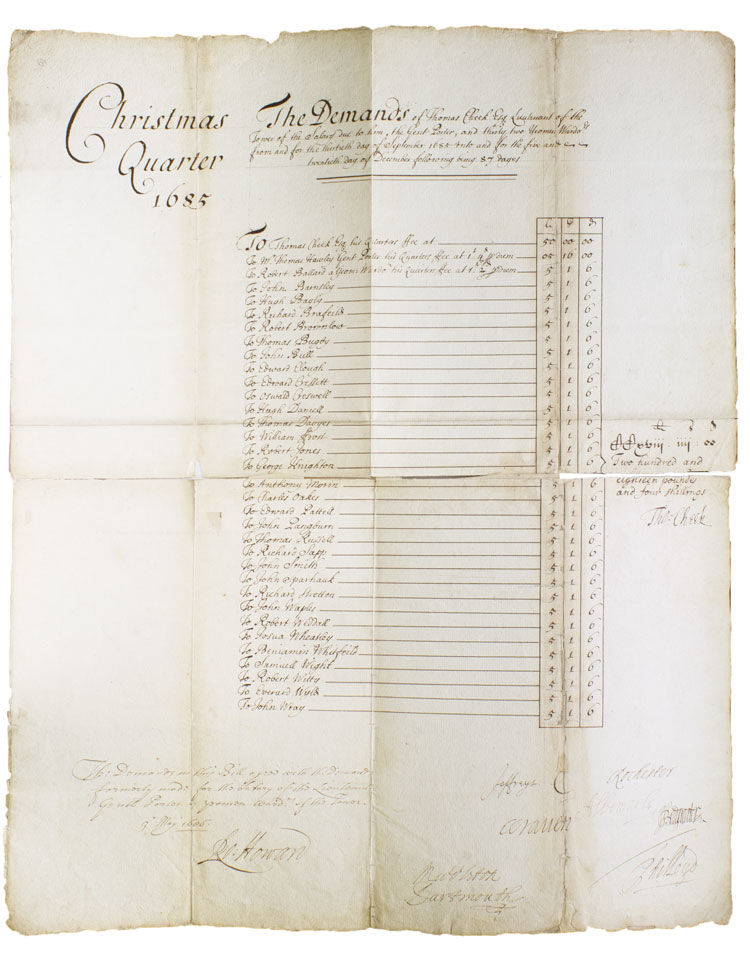 Christmas
Quarter
1685
The Demands of Thomas Cheek Esq Lieutenant of the
Tower of the Salary due to him, the Gent Porter, and thirty two Yeomen Wardrs
from and for the thirtieth day of September 1685 unto and for the five and
twentieth day of December following being 87 dayes
To Thomas Cheek Esq his Quarters ffee at 50 00 00
To Mr Thomas Hawley Gent Porter his Quarters ffee at 1s 4d p diem 05 16 00
To Robert Ballard a Yeom: Wardr his Quarters ffee at 1s 2d p diem 5 1 6
To John Barnsley 5 1 6
To Hugh Bayly 5 1 6
To Richard Brafeild 5 1 6
To Robert Brownlow 5 1 6
To Thomas Bugby 5 1 6
To John Bull 5 1 6
To Edward Clough 5 1 6
To Edward Cressett 5 1 6
To Oswald Creswell 5 1 6
To Hugh Daniell 5 1 6
To Thomas Davyes 5 1 6
To William ffrost 5 1 6
To Robert Jones 5 1 6
To George Knighton 5 1 6
To Anthony Morin 5 1 6
To Charles Oakes 5 1 6
To Edward Pattell 5 1 6
To John Pangburn 5 1 6
To Thomas Russell 5 1 6
To Richard Sapp 5 1 6
To John Smith 5 1 6
To John Sparhauk 5 1 6
To Richard Stretton 5 1 6
To John Waple 5 1 6
To Robert Weddall 5 1 6
To Josua Wheatley 5 1 6
To Beniamin Whitfeild 5 1 6
To Samuell Wight 5 1 6
To Robert Witty 5 1 6
To Everard Wyld 5 1 6
To John Wray 5 1 6
CCxviii : iiii : 00
Two hundred and
eighteen pounds
and four shillings
Tho: Cheek
The Demands in this Bill agree with the demand
formerly made for the Salary of the Lieutenant
Gentl Porter & yeomen Wardrs of the Tower.
May
Ro: Howard
Jeffreys C
Rochester
Craven
Albemarle
Middleton
Dartmouth